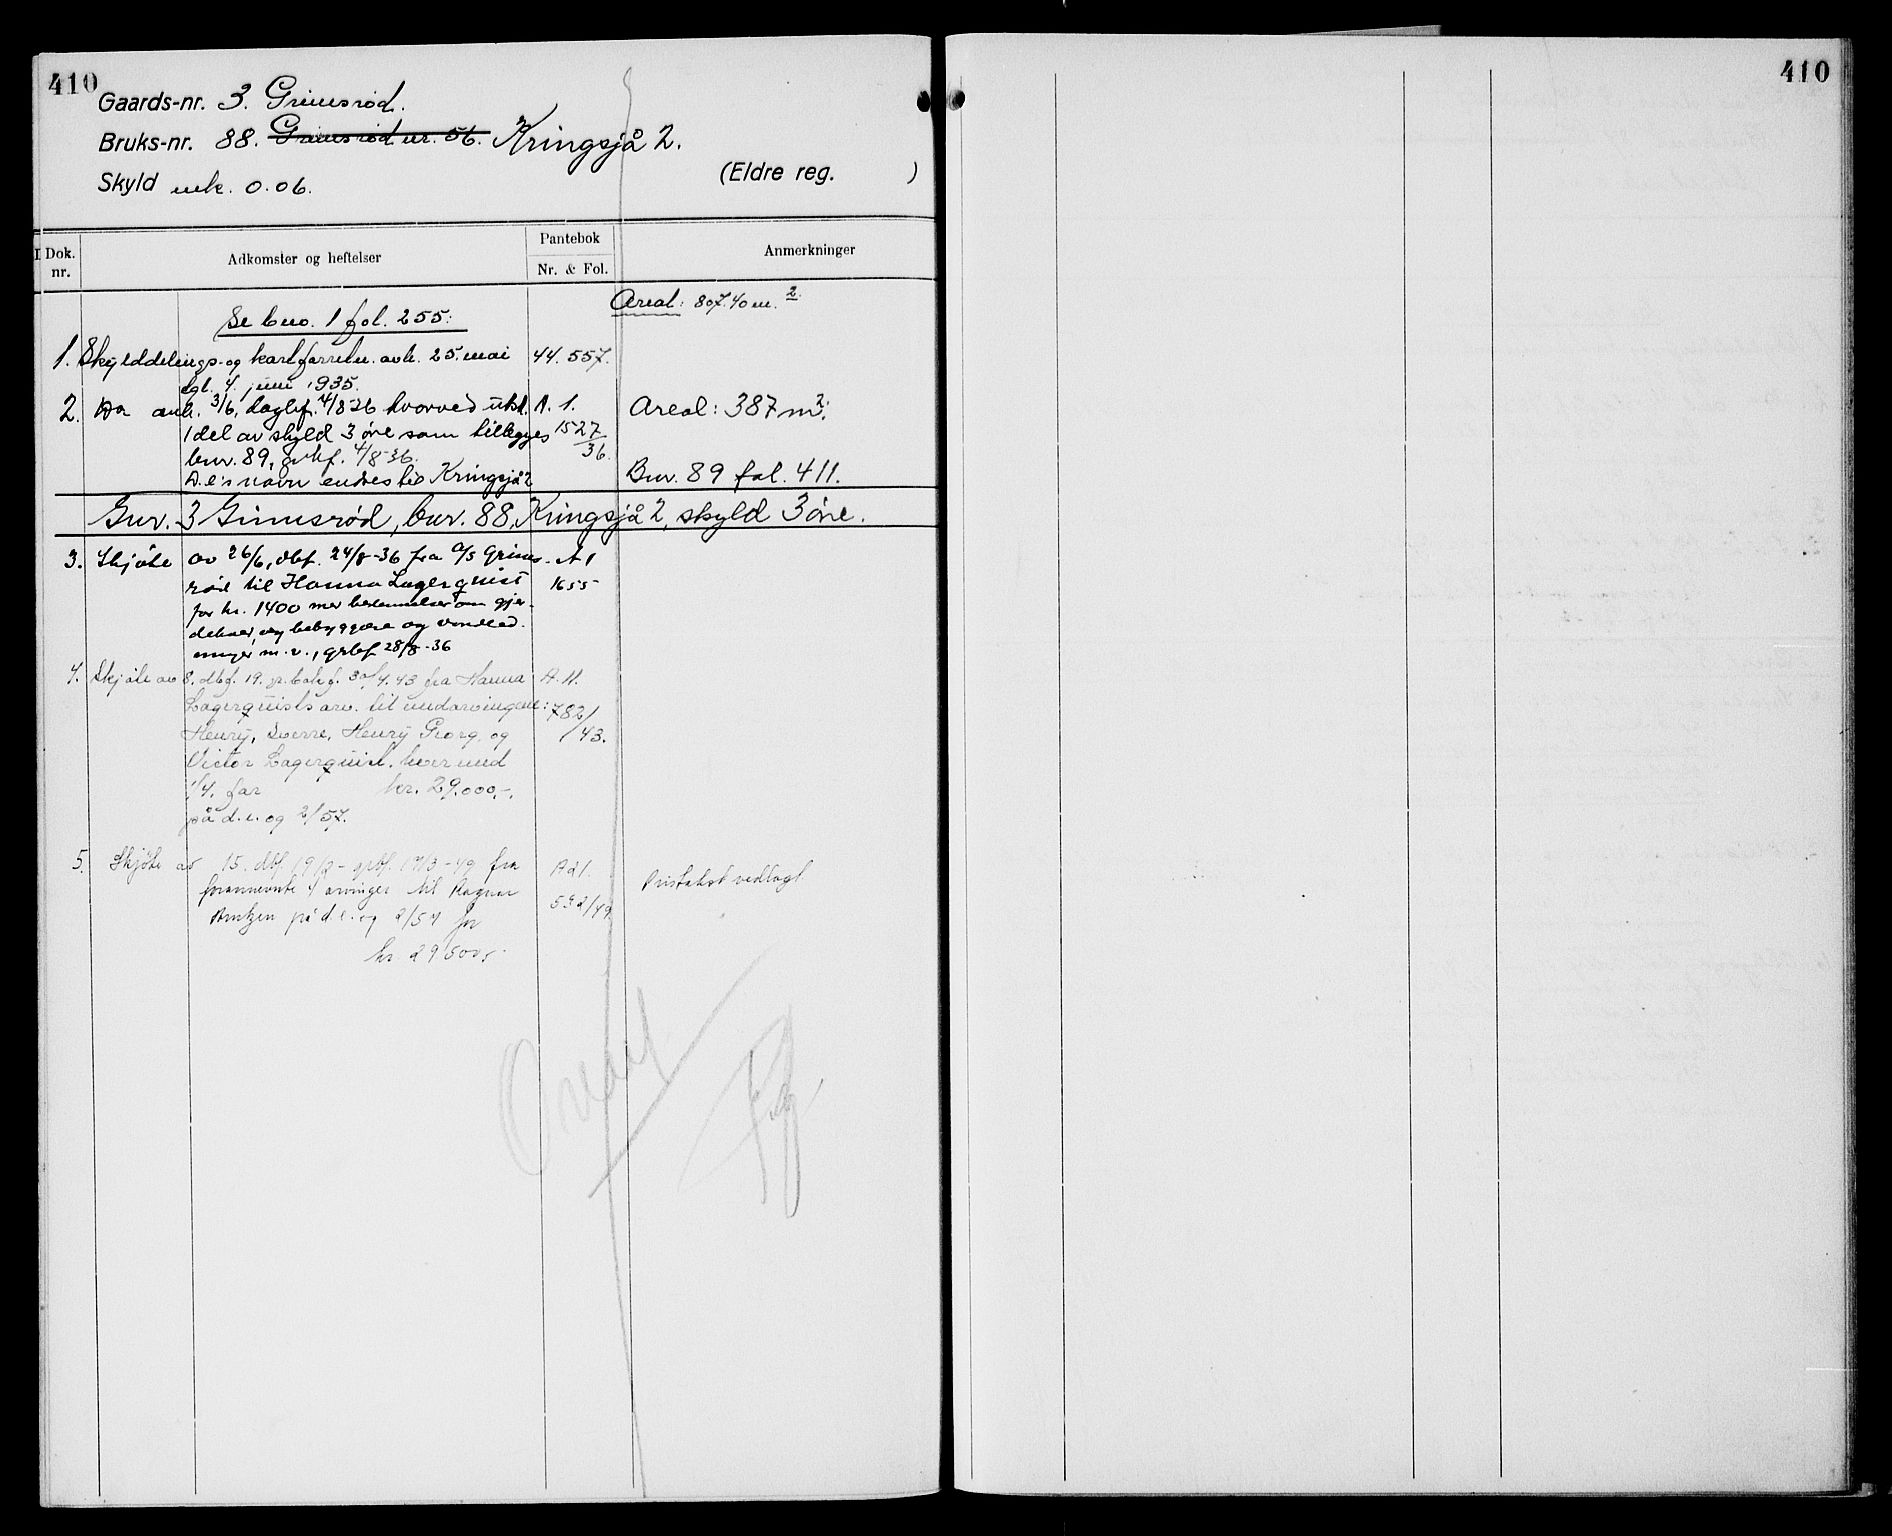 410
Gaards-nr. 3. Grimsrød.
Bruks-nr. 88. Grimsrød nr. 56. Kringsjå 2.
Skyld mk. 0.06.
(Eldre reg. )
Dok. nr.
Adkomster og heftelser
Pantebok
Nr. & Fol.
Anmerkninger
Areal: 807.40 m.2
Se bno. 1 fol. 255.
1. Skylddelings- og kartforretn. avh. 25. mai 44. 557.
tgl. 4. juni 1935.
2. Do avh. 3/6, dagbf. 4/8-36 hvorved utsk. A. 1. Areal: 387 m2.
1 del av skyld 3 øre som tillegges 1527/36.
bnr. 89, grbf. 4/8-36.
D.e's navn endres til Kringsjå 2 Bnr. 89 fol. 411.
Gnr. 3 Grimsrød, bnr. 88, Kringsjå 2, skyld 3 øre.
3. Skjøte av 26/6, dbf. 24/8-36 fra A/S Grims- A 1
rød til Hanna Lagerquist 1655
for kr. 1400 med bestemmelser om gjer-
dehold, bebyggelse og vannled-
ninger m.v., grbf 28/8-36
4. Skjøte av 8. dbf. 19. gr.bokf. 30/4.43 fra Hanna A. 11.
Lagerquists arv. til medarvingene: 782/43.
Henry, Sverre, Henry Georg, og
Victor Lagerquist, hver med
1/4. for kr. 29.000,-.
på d.e. og 2/57.
5. Skjøte av 15. dbf. 19/2- grbf. 17/3-49 fra Ad 1.
forannevnte 4 arvinger til Ragnar 532/49.
Arntzen på d.e. og 2/57 for
kr. 29500,-
Pristakst vedlagt
410